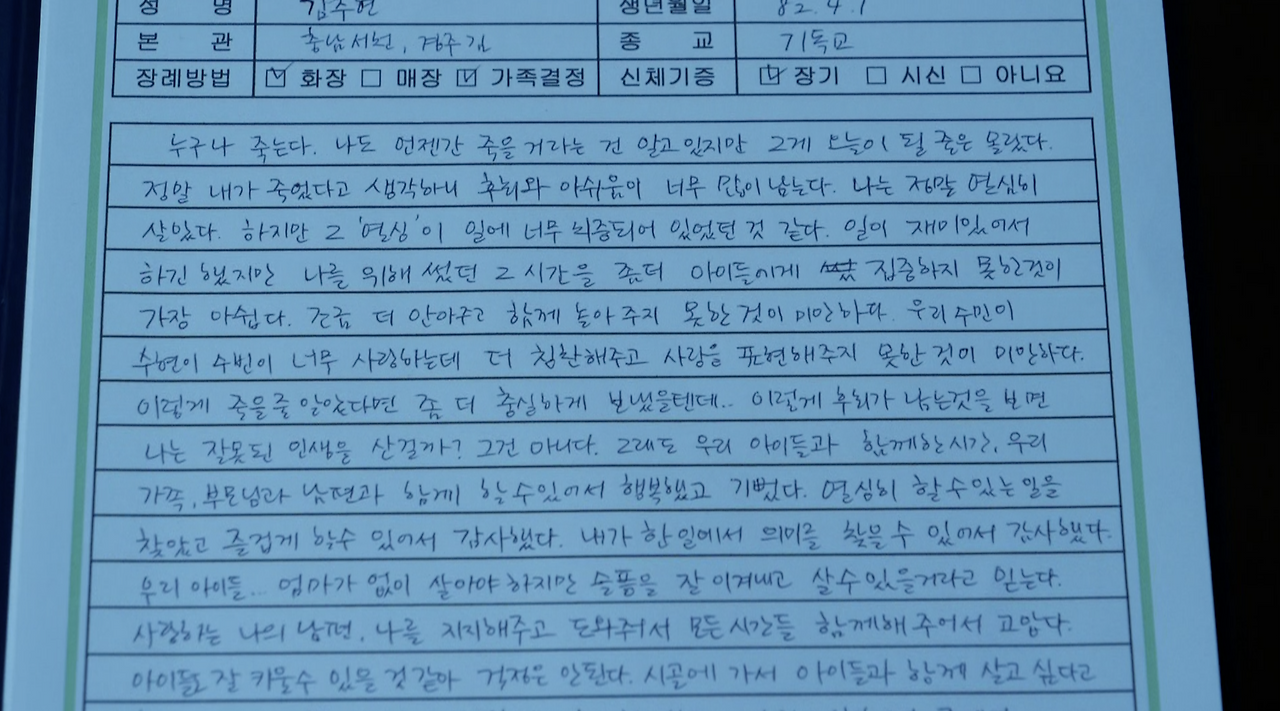 성 명 김수현 생년월일 82. 4. 1
본 관 충남서천, 경주김 종 교 기독교
장례방법 ☑ 화장 ☐ 매장 ☑ 가족결정 신체기증 ☑ 장기 ☐ 시신 ☐ 아니요
누구나 죽는다. 나도 언젠간 죽을 거라는 건 알고 있지만 그게 오늘이 될 줄은 몰랐다.
정말 내가 죽었다고 생각하니 후회와 아쉬움이 너무 많이 남는다. 나는 정말 열심히
살았다. 하지만 그 '열심'이 일에 너무 치중되어 있었던 것 같다. 일이 재미있어서
하긴 했지만 나를 위해 썼던 그 시간을 좀더 아이들에게 집중하지 못한것이
가장 아쉽다. 조금 더 안아주고 함께 놀아 주지 못한 것이 미안하다. 우리 수민이
수현이 수빈이 너무 사랑하는데 더 칭찬해주고 사랑을 표현해주지 못한 것이 미안하다.
이렇게 죽을줄 알았다면 좀 더 충실하게 보냈을텐데.. 이렇게 후회가 남는것을 보면
나는 잘못된 인생을 산걸까? 그건 아니다. 그래도 우리 아이들과 함께한시간, 우리
가족, 부모님과 남편과 함께 할 수 있어서 행복했고 기뻤다. 열심히 할 수 있는 일을
찾았고 즐겁게 할수 있어서 감사했다. 내가 한 일에서 의미를 찾을 수 있어서 감사했다.
우리 아이들... 엄마가 없이 살아야 하지만 슬픔을 잘 이겨내고 살 수 있을거라고 믿는다.
사랑하는 나의 남편, 나를 지지해주고 도와줘서 모든 시간들 함께해 주어서 고맙다.
아이들도 잘 키울수 있을 것 같아 걱정은 안된다. 시골에 가서 아이들과 함께 살고 싶다고